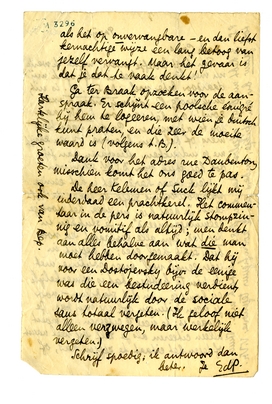 3296
als het op onvervangbare – en dan liefst
kernachtige wijze een lang betoog van
jezelf vervangt. Maar het gevaar is
dat je dat te vaak denkt!
Ga ter Braak opzoeken voor de aan-
spraak. Er schijnt een poolsche émigré
bij hem te logeeren, met wien je duitsch
kunt praten, en die zeer de moeite
waard is (volgens t.B.).
Dank voor het adres rue Daubenton,
misschien komt het ons goed te pas.
De heer Kelmen of Suck lijkt mij
inderdaad een prachtkerel. Het commen-
taar in de pers is natuurlijk stompzin-
nig en vomitif als altijd; men denkt
aan alles behalve aan wat die man
moet hebben doorgemaakt. Dat hij
voor een Dostojevsky bijv. de eenige
was die een bestudeering verdient,
wordt natuurlijk door de sociale
saus totaal vergeten. (Ik geloof niet
alleen verzwegen, maar werkelijk
vergeten.)
Schrijf spoedig, ik antwoord dan
beter. Je EdP.
Hartelijke groeten ook van Bep.